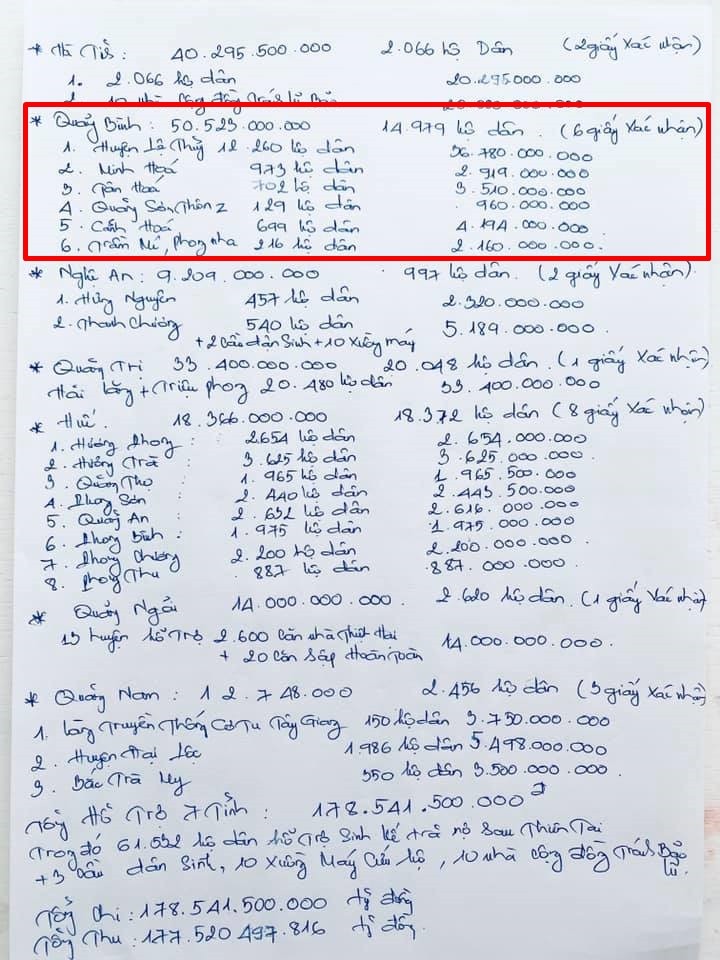 * Hà Tĩnh : 40.295.500.000 2.066 hộ Dân (2 giấy xác nhận)
1. 2.066 hộ dân 20.295.000.000
2. 10 nhà cộng đồng tránh lũ Bão 20.000.000.000
* Quảng Bình : 50.523.000.000 14.979 hộ dân . (6 giấy xác nhận)
1. Huyện Lệ Thủy 12.260 hộ dân 36.780.000.000
2. Minh Hoá 973 hộ dân 2.919.000.000
3. Tân Hoá 702 hộ dân 3.510.000.000
4. Quảng Sơn, Thôn 2 129 hộ dân 960.000.000
5. Cảnh Hoá 699 hộ dân 4.194.000.000.
6. Trầm Mé, phong nha 216 hộ dân 2.160.000.000.
* Nghệ An : 9.209.000.000 997 hộ dân. (2 giấy xác nhận).
1. Hưng Nguyên 457 hộ dân 2.320.000.000
2. Thanh Chương 540 hộ dân 5.189.000.000.
+ 2 cầu dân sinh + 10 xuồng máy
* Quảng Trị 33.400.000.000 20.048 hộ dân. (1 giấy xác nhận)
Hải Lăng + Triệu phong 20.480 hộ dân 33.400.000.000
* Huế. 18.366.000.000 18.372 hộ dân (8 giấy xác nhận)
1. Hương Phong : 2654 hộ dân 2.654.000.000
2. Hương Trà : 3.625 hộ dân 3.625.000.000.
3. Quảng Thọ 1.965 hộ dân 1.965.500.000
4. Phong Sơn : 2.440 hộ dân 2.443.500.000
5. Quảng An : 2.632 hộ dân 2.616.000.000
6. Phong Bình : 1.975 hộ dân 1.975.000.000
7. Phong Chương 2.200 hộ dân 2.200.000.000.
8. Phong Thu 887 hộ dân 887.000.000.
* Quảng Ngãi 14.000.000.000. 2.620 hộ dân. (1 giấy xác nhận)
13 huyện hỗ trợ 2.600 căn nhà thiệt hại 14.000.000.000.
+ 20 căn sập hoàn toàn
* Quảng Nam : 12.748.000 2.456 hộ dân (3 giấy xác nhận)
1. Làng Truyền Thống Cơ Tu Tây Giang 150 hộ dân 3.750.000.000
2. Huyện Đại Lộc 1.986 hộ dân 5.498.000.000
3. Bắc Trà My 350 hộ dân 3.500.000.000.
Tổng Hỗ Trợ 7 Tỉnh : 178.541.500.000
Trong đó 61.532 hộ dân hỗ trợ sinh kế trả nợ sau thiên tai
+ 3 cầu dân sinh, 10 xuồng máy cứu hộ, 10 nhà cộng đồng tránh Bão lũ.
Tổng chi : 178.541.500.000 tỷ đồng
Tổng Thu : 177.520.497.816 tỷ đồng.